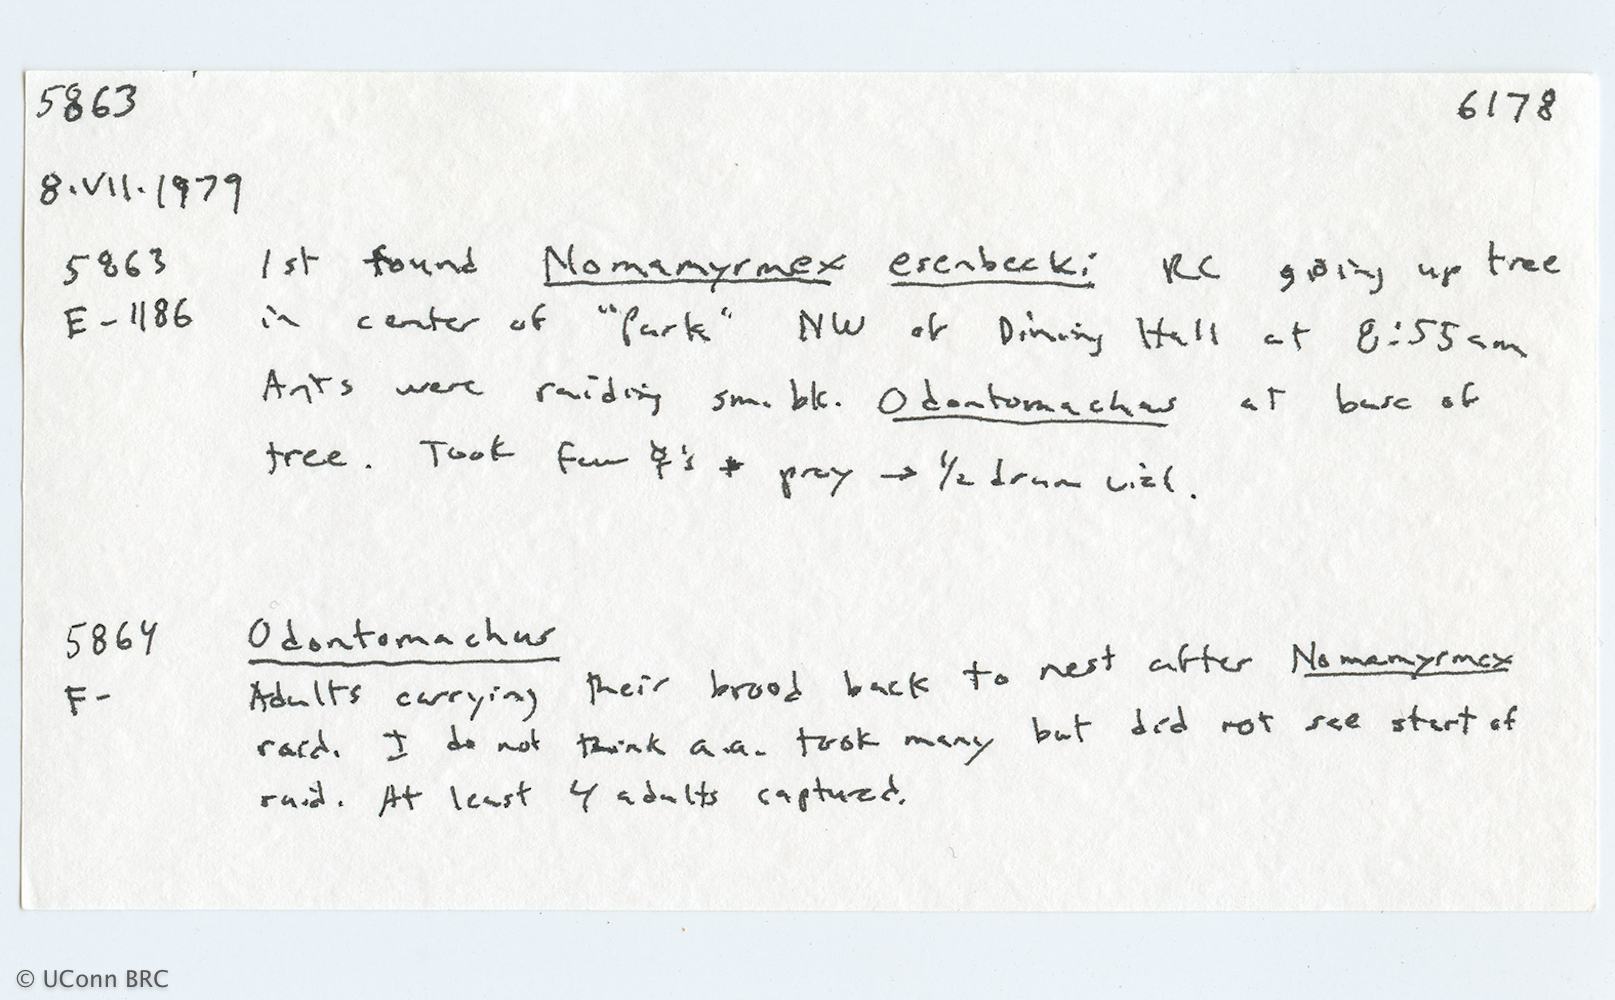 5863 6178
8.VII.1979
5863 1st found Nomamyrmex esenbecki RC going up tree
E-1186 in center of "Park" NW of Dining Hall at 8:55am
Ants were raiding sm. bk. Odontomachus at base of
tree. Took few ☿'s + prey → 1/2 dram vial.
5864 Odontomachus
F- Adults carrying their brood back to nest after Nomamyrmex
raid. I do not think a.a. took many but did not see start of
raid. At least 4 adults captured.
© UConn BRC